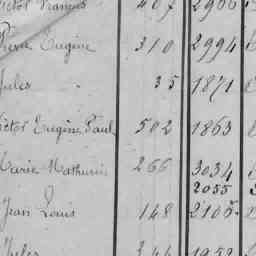 Victor François 407 2966
Pierre Eugène 310 2994
Jules 35 1871
Victor Eugène Paul 502 1863
Marie Mathurin 266 3034
2055
Jean Louis 148 2105
Jules 344 1952